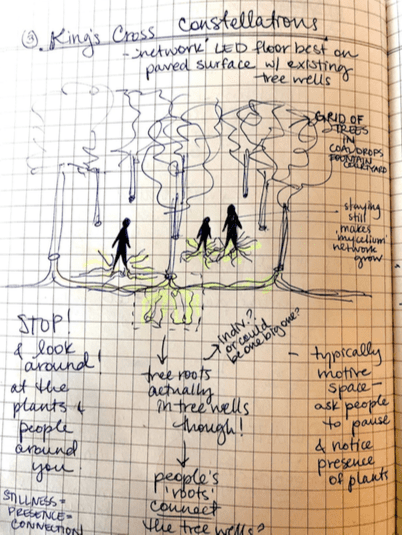 ③ King's Cross Constellations
- 'network' LED floor best on
paved surface w/ existing
tree wells
GRID OF
TREES
IN
COALDROPS
FOUNTAIN
COURTYARD
staying
still
makes
mycelium
network
grow
STOP!
& look
around!
at the
plants &
people
around
you
STILLNESS =
PRESENCE =
CONNECTION
indiv.?
or could
be one big one?
tree roots
actually
in tree wells
though!
people's
'roots'
connect
the tree wells?
- typically
motive
space -
ask people
to pause
& notice
presence
of plants